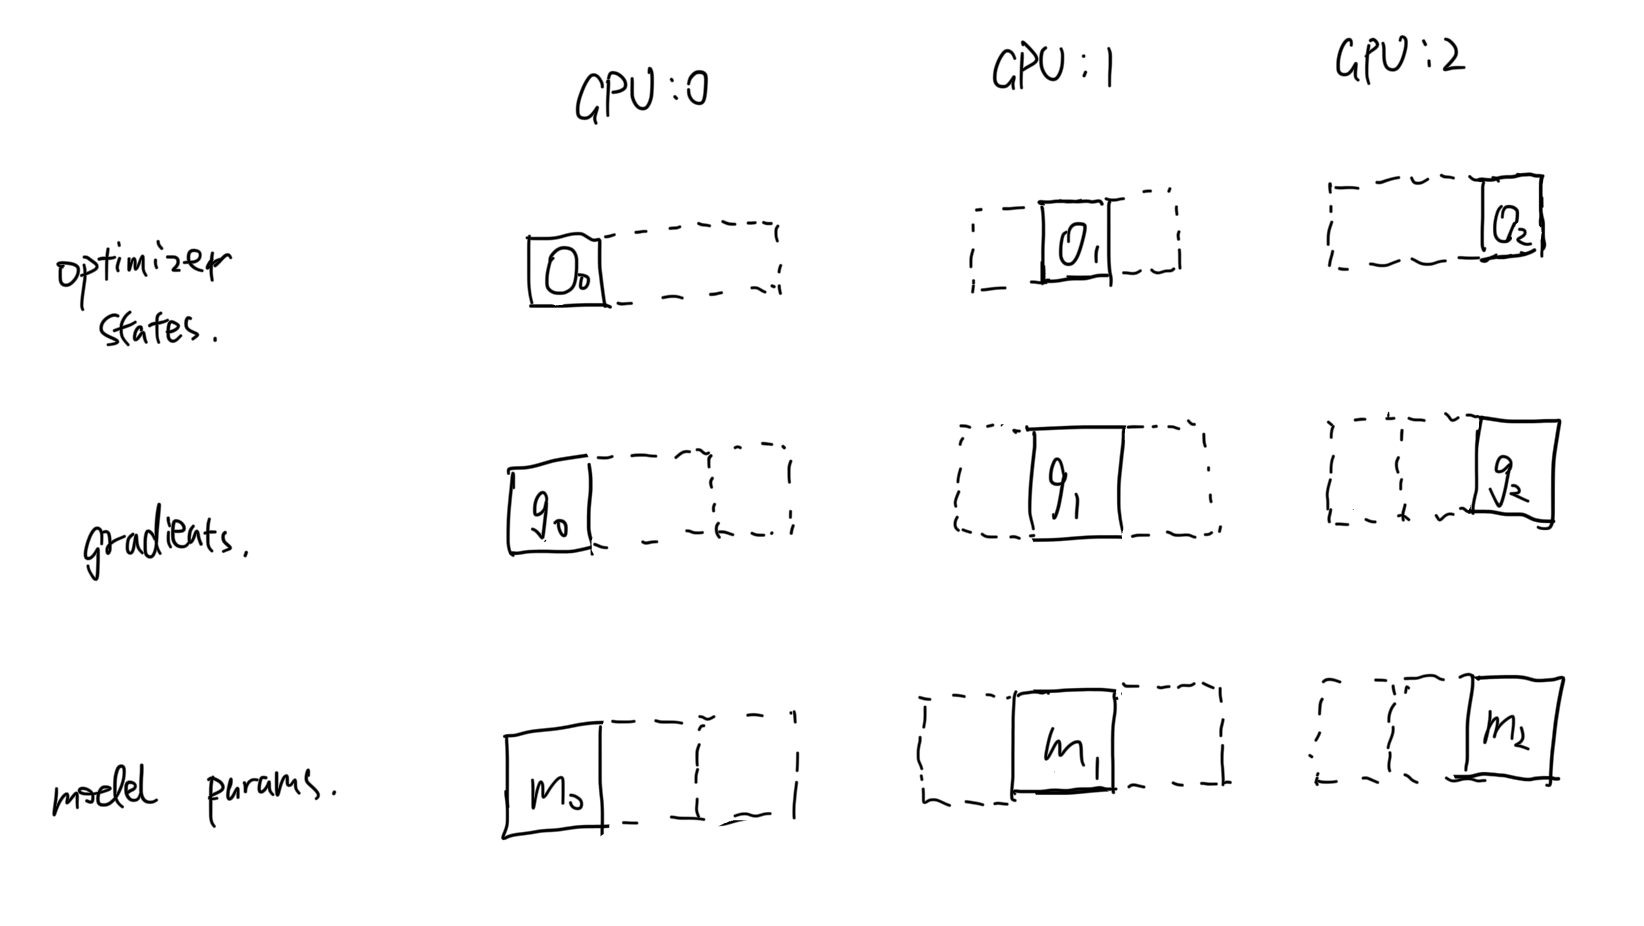 GPU:0 GPU:1 GPU:2
optimizer O₀ O₁ O₂
states.
gradients. g₀ g₁ g₂
model params. m₀ m₁ m₂